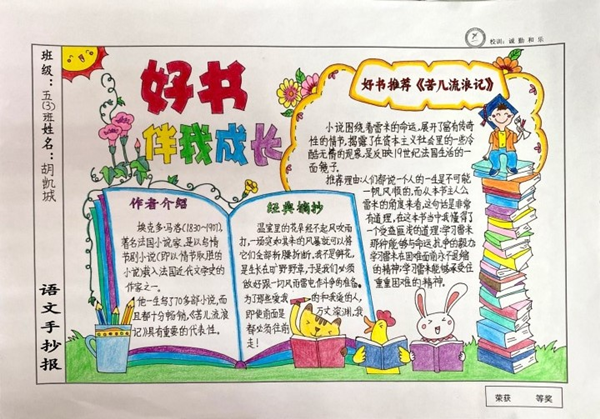 校训：诚 勤 和 乐
班级：五(3)班姓名：胡凯城
语文手抄报
好书
伴我成长
好书推荐《苦儿流浪记》
小说围绕着雷米的命运，展开了富有传奇
性的情节，揭露了在资本主义社会里的一些冷
酷无情的现象，是反映19世纪法国生活的一
面镜子。
推荐理由：人们都说一个人的一生是不可能
一帆风顺的，而从本书主人公
雷米的角度来看，这句话是非常
有道理，在这本书当中我懂得了
一个受益匪浅的道理：学习雷米
那种能够与命运抗争的毅力，
学习雷米在困难面前永不
的精神，学习雷米能够承受住
重重困难的精神。
作者介绍
埃克多·马洛(1830-1907)，
著名法国小说家，是以情
节剧小说(即以情节取胜的
小说)载入法国近代文学史的
作家之一。
他一生写了70多部小说，而
且都十分畅销，《苦儿流浪
记》具有重要的代表性。
经典摘抄
温室里的花草经不起风吹雨
打，一场突如其来的风暴就可以将
它们全部折腰折断，我不是鲜花，
是生长在旷野野草，于是我们必须
做好跟一切风雨雷电作斗争的准备。
为了那些爱我的和我爱的人，
即使前面是万丈深渊，我
都必须往前
走！
荣获 等奖